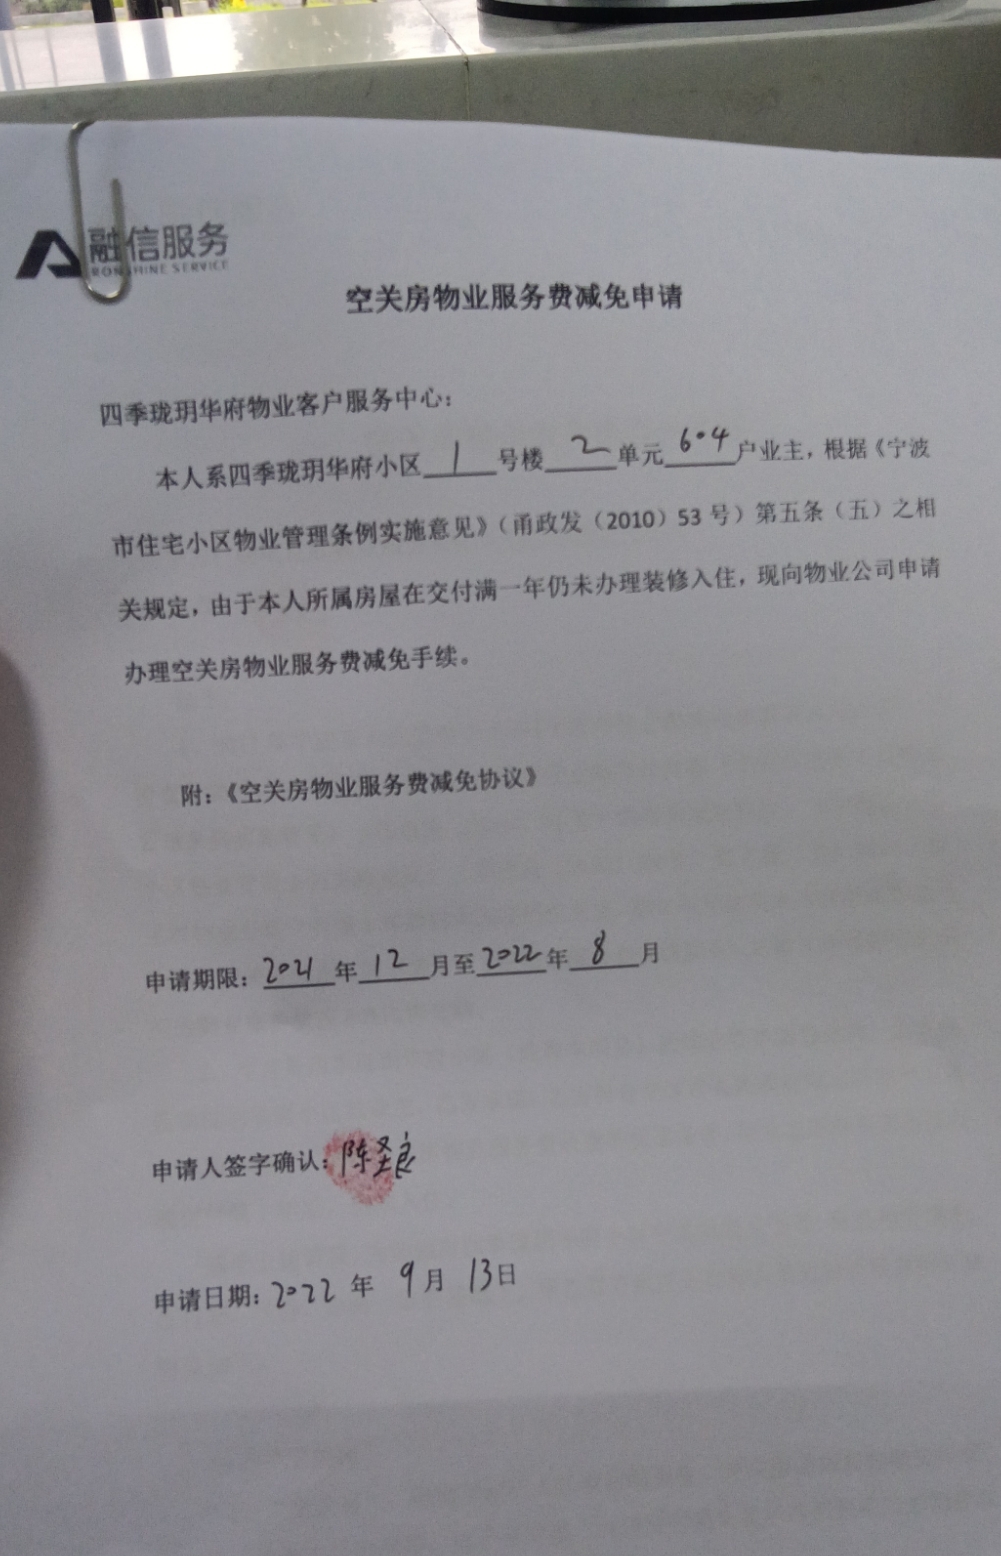 融信服务
RONSHINE SERVICE
空关房物业服务费减免申请
四季珑玥华府物业客户服务中心：
本人系四季珑玥华府小区1号楼2单元604户业主，根据《宁波
市住宅小区物业管理条例实施意见》（甬政发（2010）53号）第五条（五）之相
关规定，由于本人所属房屋在交付满一年仍未办理装修入住，现向物业公司申请
办理空关房物业服务费减免手续。
附：《空关房物业服务费减免协议》
申请期限：2021年12月至2022年8月
申请人签字确认：陈圣良
申请日期：2022年9月13日